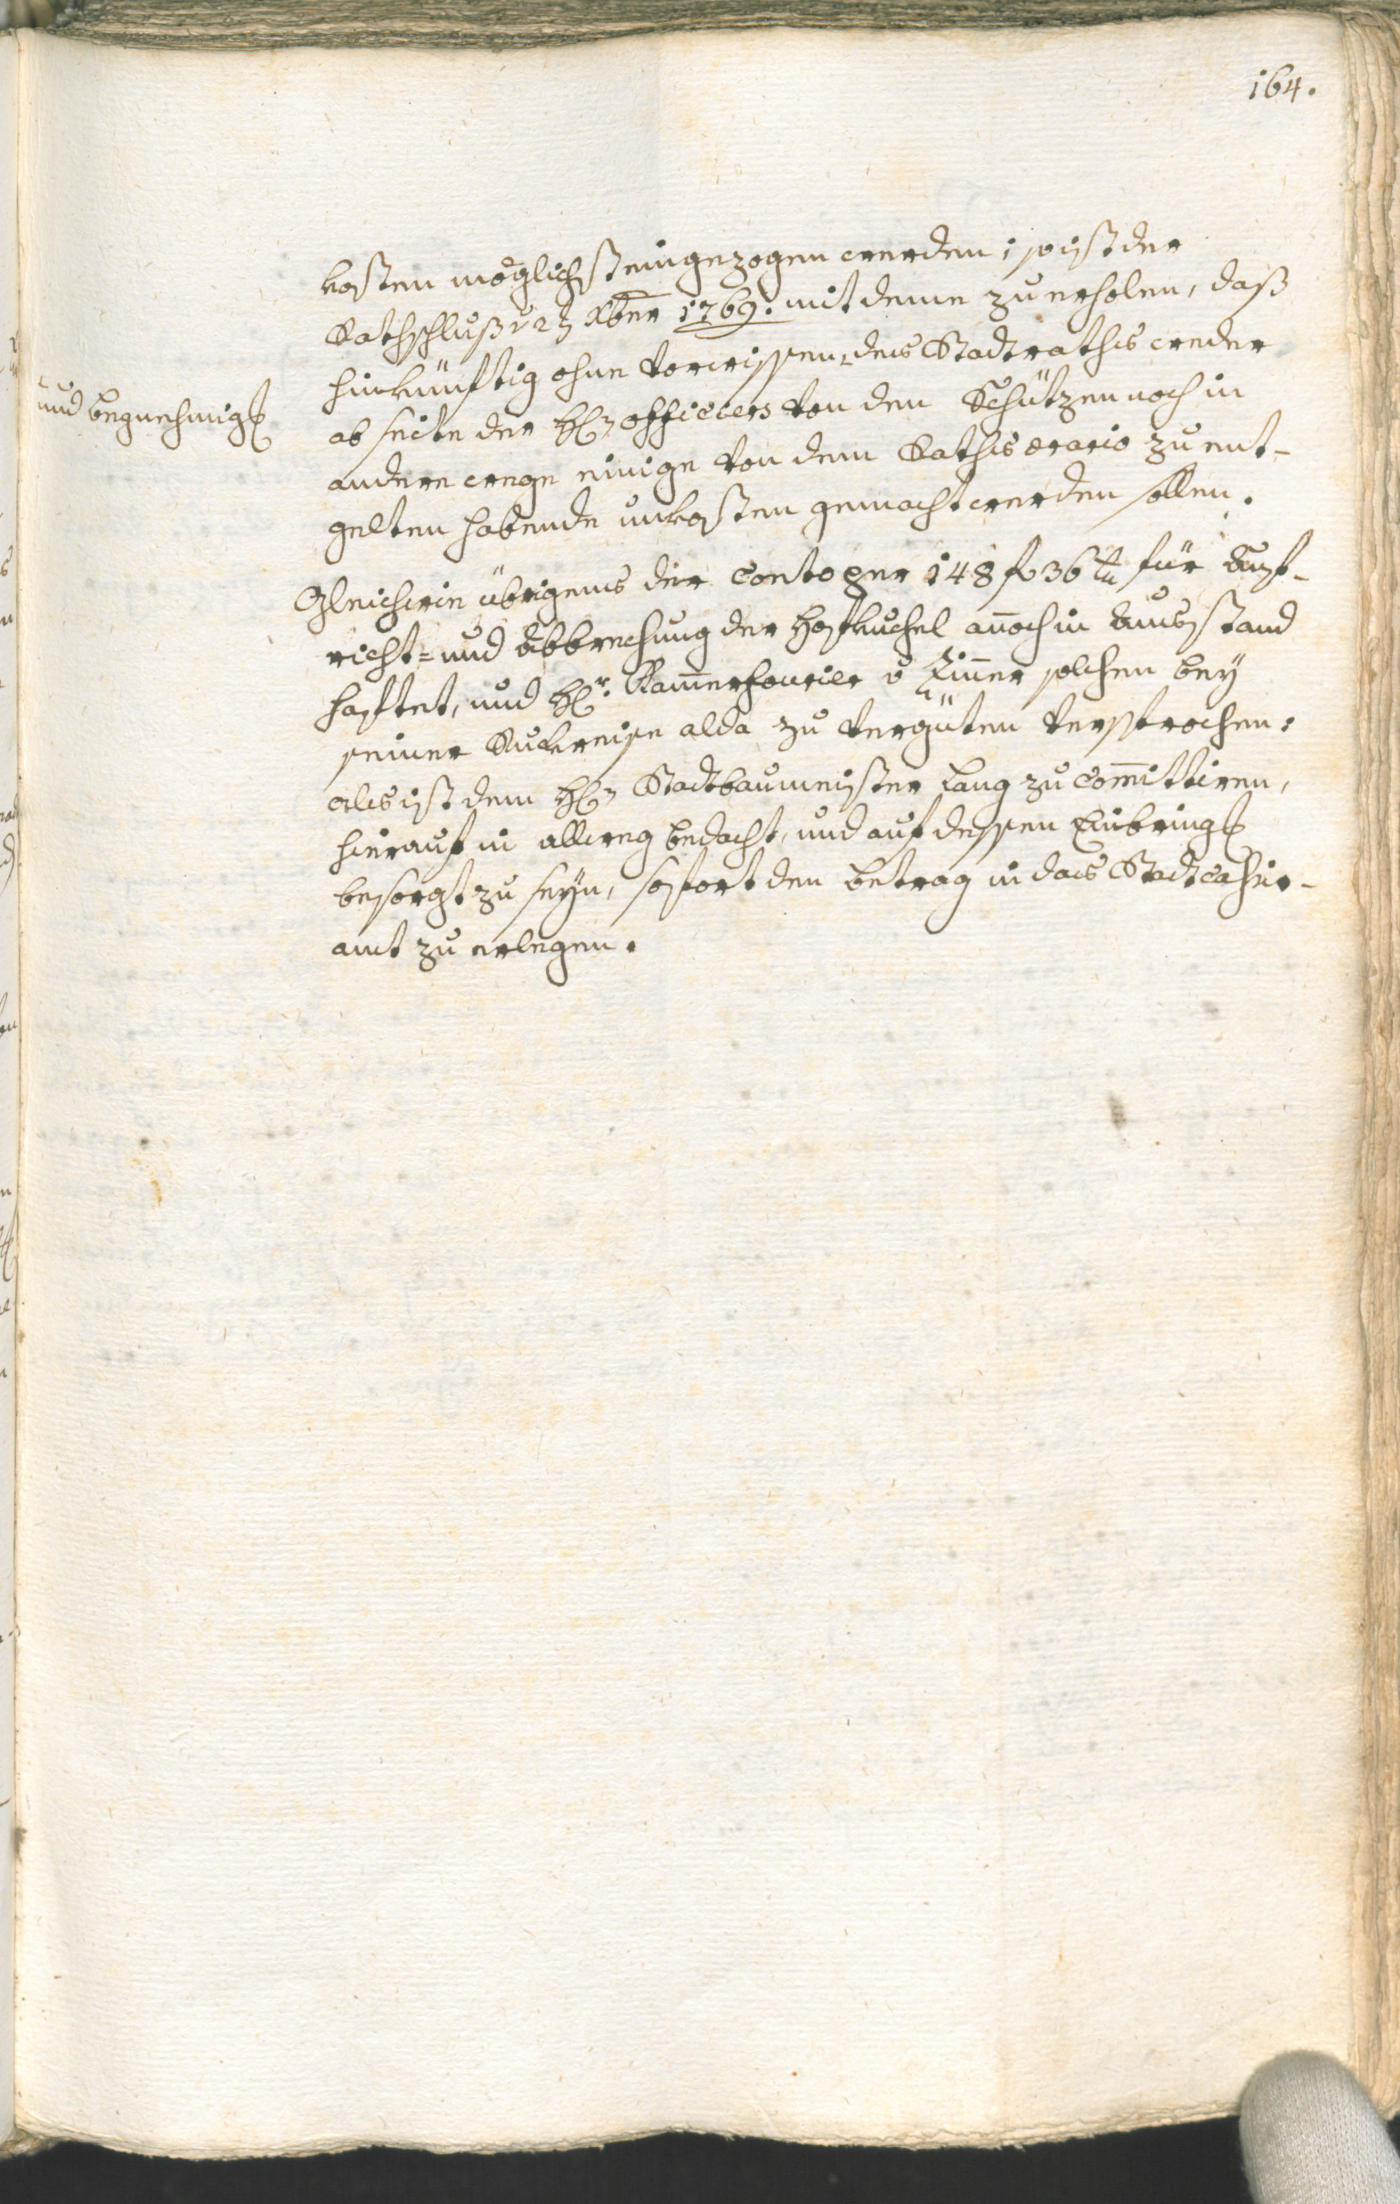 164.
kosten möglichst eingezogen werden; so ist der
Rathschluß v 23 Xber 1769. mit deme zu erholen, daß
hinkünftig ohne vorwissen des Stadtraths weder
und begnehmig
ab seite der H officiers von den Schützen noch in
andere weege einige von dem Raths ærario zu ent-
gelten habende unkosten gemacht werden sollen.
Gleichwie übrigens der Conto per 148 f 36 für Auf-
richt- und Abbrechung der Hofkuchel annoch in Ausstand
haftet, und Hr. Kammerfourier v Zinner solchen bey
seiner Rukreise alda zu vergüten versprochen:
als ist dem H Stadtbaumeister Lang zu Committiren,
hierauf in allweeg bedacht, und auf dessen Einbring
besorgt zu seyn, sofort den betrag in das Stadtcassir-
amt zu erlegen.